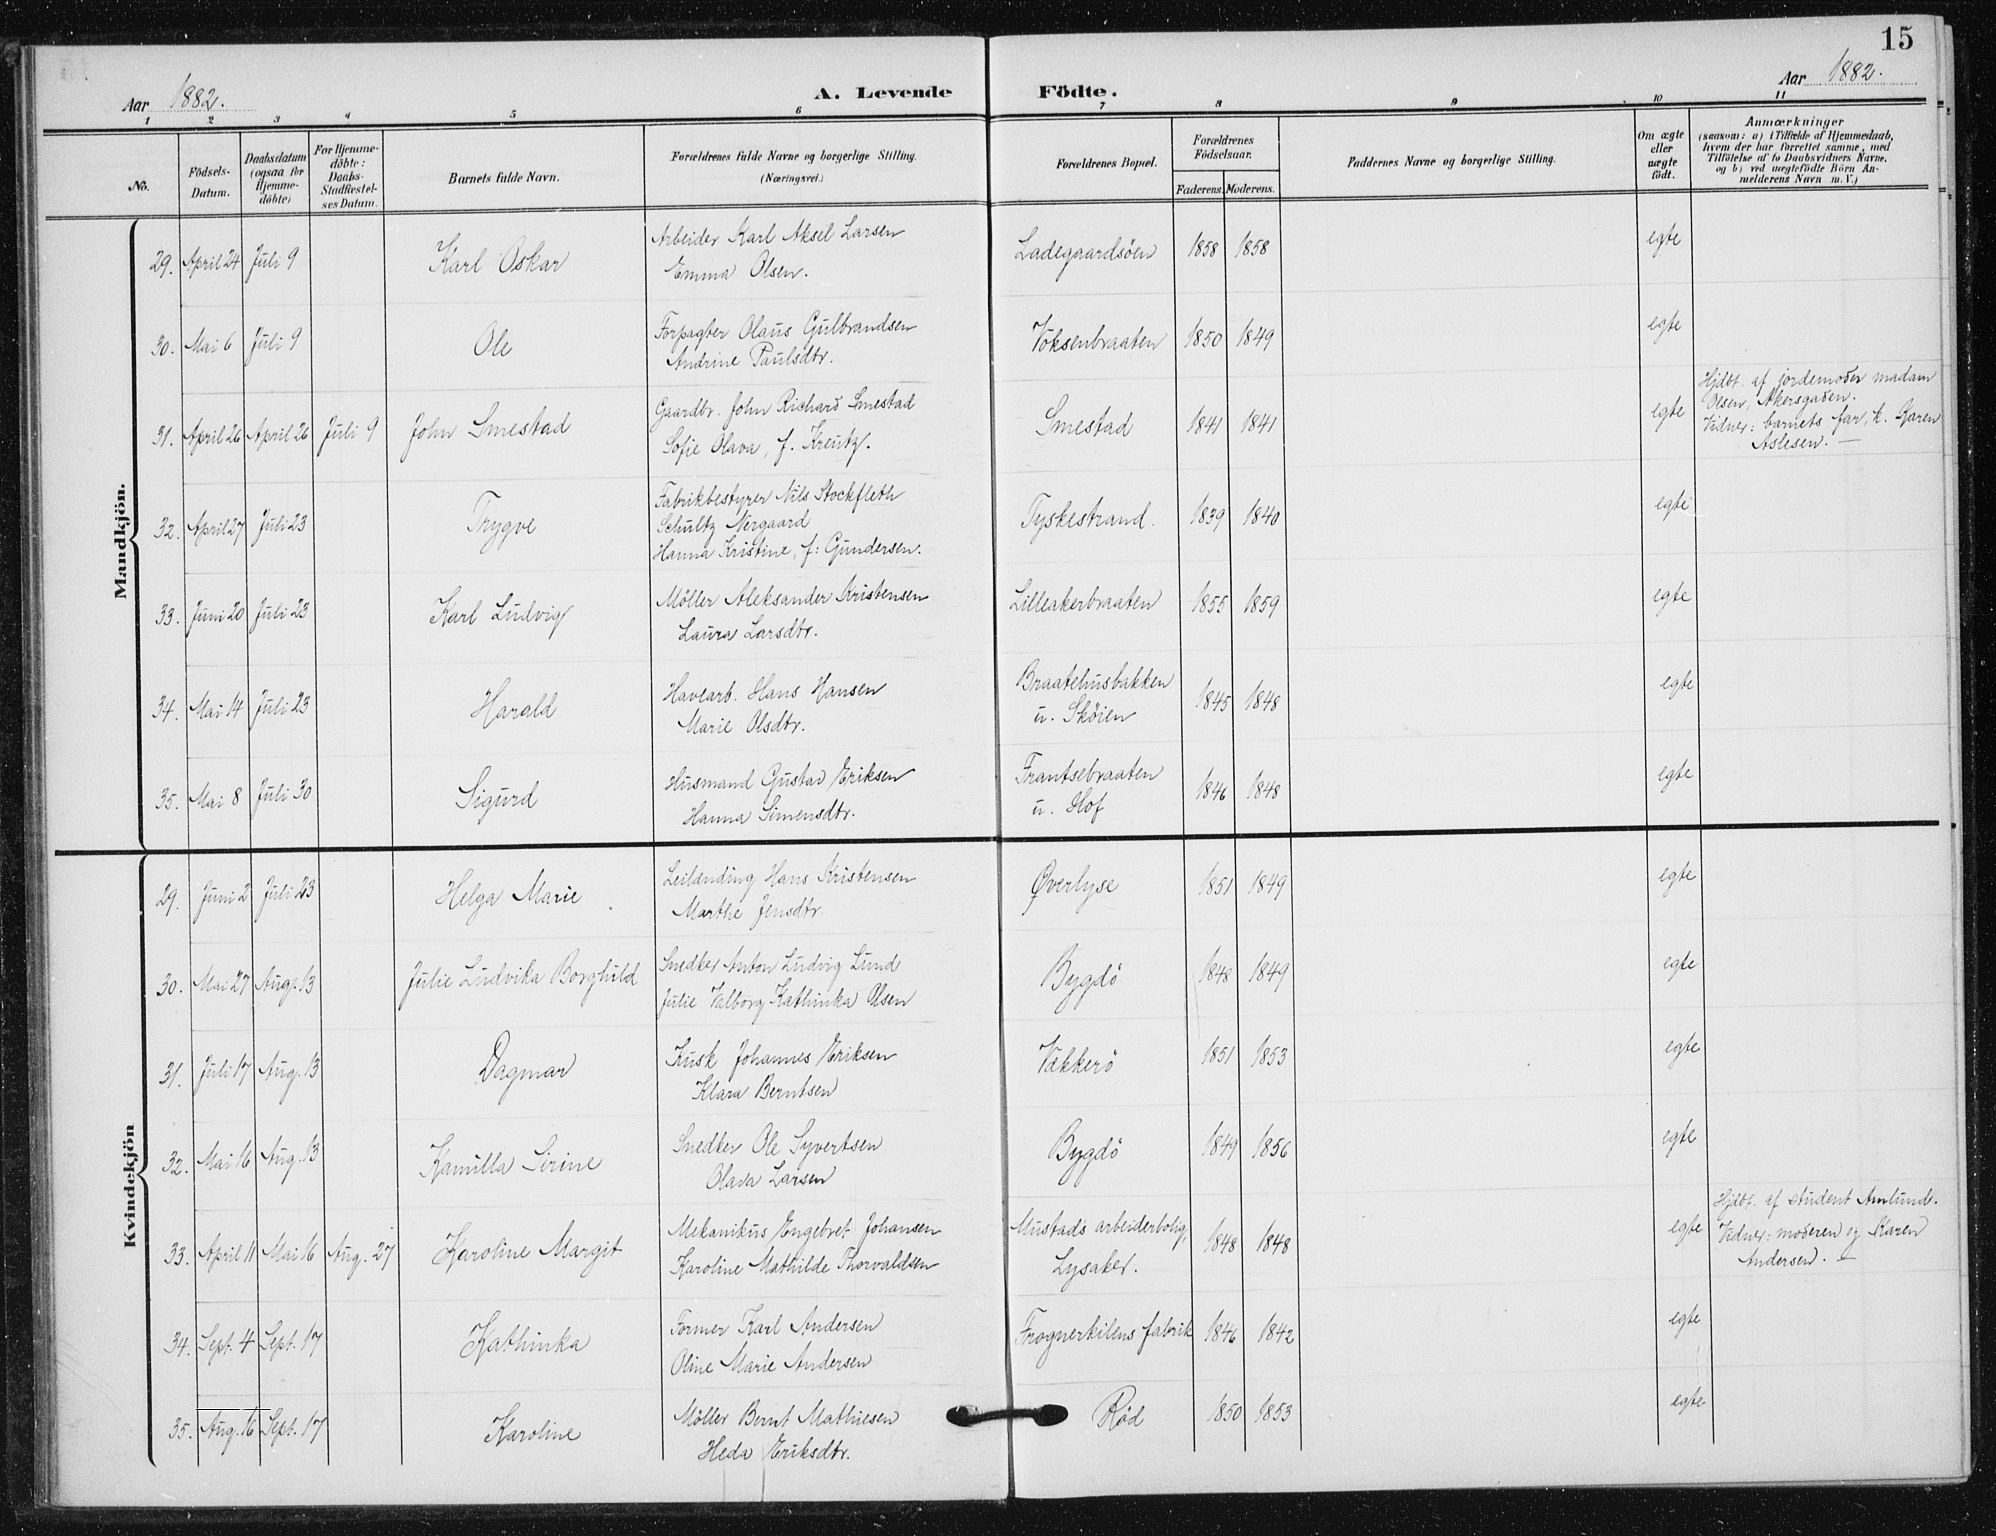 15
Aar 1882.
A. Levende Födte.
Aar 1882.
1 2 3 4 5 6 7 8 9 10 11
No.
Födsels-
Datum.
Daabsdatum
(ogsaa for
Hjemme-
döbte)
For Hjemme-
döbte:
Daabs-
Stadfæstel-
ses Datum.
Barnets fulde Navn.
Forældrenes fulde Navne og borgerlige Stilling.
(Næringsvei.)
Forældrenes Bopæl.
Forældrenes
Födselsaar.
Faderens. Moderens.
Faddernes Navne og borgerlige Stilling.
Om ægte
eller
uægte
födt.
Anmærkninger
(saasom: a) i Tilfælde af Hjemmedaab,
hvem der har forrettet samme, med
Tilföielse af to Daabsvidners Navne,
og b) ved uægtefödte Börn An-
melderens Navn m. V.)
Mandkjön.
29. April 24 Juli 9 Karl Oskar Arbeider Karl Aksel Larsen Ladegaardsöen 1858 1858 egte
Emma Olsen.
30. Mai 6 Juli 9 Ole Forpagter Olaus Gulbrandsen Voksenbraaten 1850 1849 egte
Andrine Paulsdtr.
31. April 26 April 26 Juli 9 John Smestad Gaardbr. John Richard Smestad Smestad 1841 1841 egte
Sofie Olava, f. Kreutz.
Hjdbt. af jordemoder madam
Olsen, Akersgaden.
Vidner: barnets far, k. Karen
Aslesen. —
32. April 27 Juli 23 Trygve Fabrikbestyrer Nils Stockfleth Tyskestrand. 1839 1840 egte
Schultz Nergaard
Hanna Kristine, f: Gundersen.
33. Juni 20 Juli 23 Karl Ludvig Möller Aleksander Kristensen Lilleakerbraaten 1855 1859 egte
Laura Larsdtr.
34. Mai 14 Juli 23 Harald Havearb. Hans Hansen Braatehusbakken 1845 1848 egte
Marie Olsdtr. u. Sköien
35. Mai 8 Juli 30 Sigurd Husmand Gustav Eriksen Frantsebraaten 1846 1848 egte
Hanna Simensdtr. u. Hof
Kvindekjön
29. Juni 2 Juli 23 Helga Marie Leilænding Hans Kristensen Øverlyse 1851 1849 egte
Marthe Jensdtr.
30. Mai 27 Aug. 13 Julie Ludvika Borghild Snedker Anton Ludvig Lund Bygdö 1848 1849 egte
Julie Valborg Kathinka Olsen
31. Juli 17 Aug. 13 Dagmar Kusk Johannes Eriksen Vækkerö 1851 1853 egte
Klara Berntsen
32. Mai 16 Aug. 13 Kamilla Sirine Snedker Ole Syvertsen Bygdö 1849 1856 egte
Olava Larsen
33. April 11 Mai 16 Aug. 27 Karoline Margit Mekanikus Engebret Johansen Mustads arbeiderbolig, 1848 1848 egte
Karoline Mathilde Thorvaldsen Lysaker.
Hjdbt. af student Amlund.
Vidner: moderen og Karen
Andersen. —
34. Sept. 4 Sept. 17 Kathinka Former Karl Andersen Frognerkilens fabrik 1846 1842 egte
Oline Marie Andersen
35. Aug. 16 Sept. 17 Karoline Möller Bernt Mathiesen Röd 1850 1853 egte
Heda Eriksdtr.